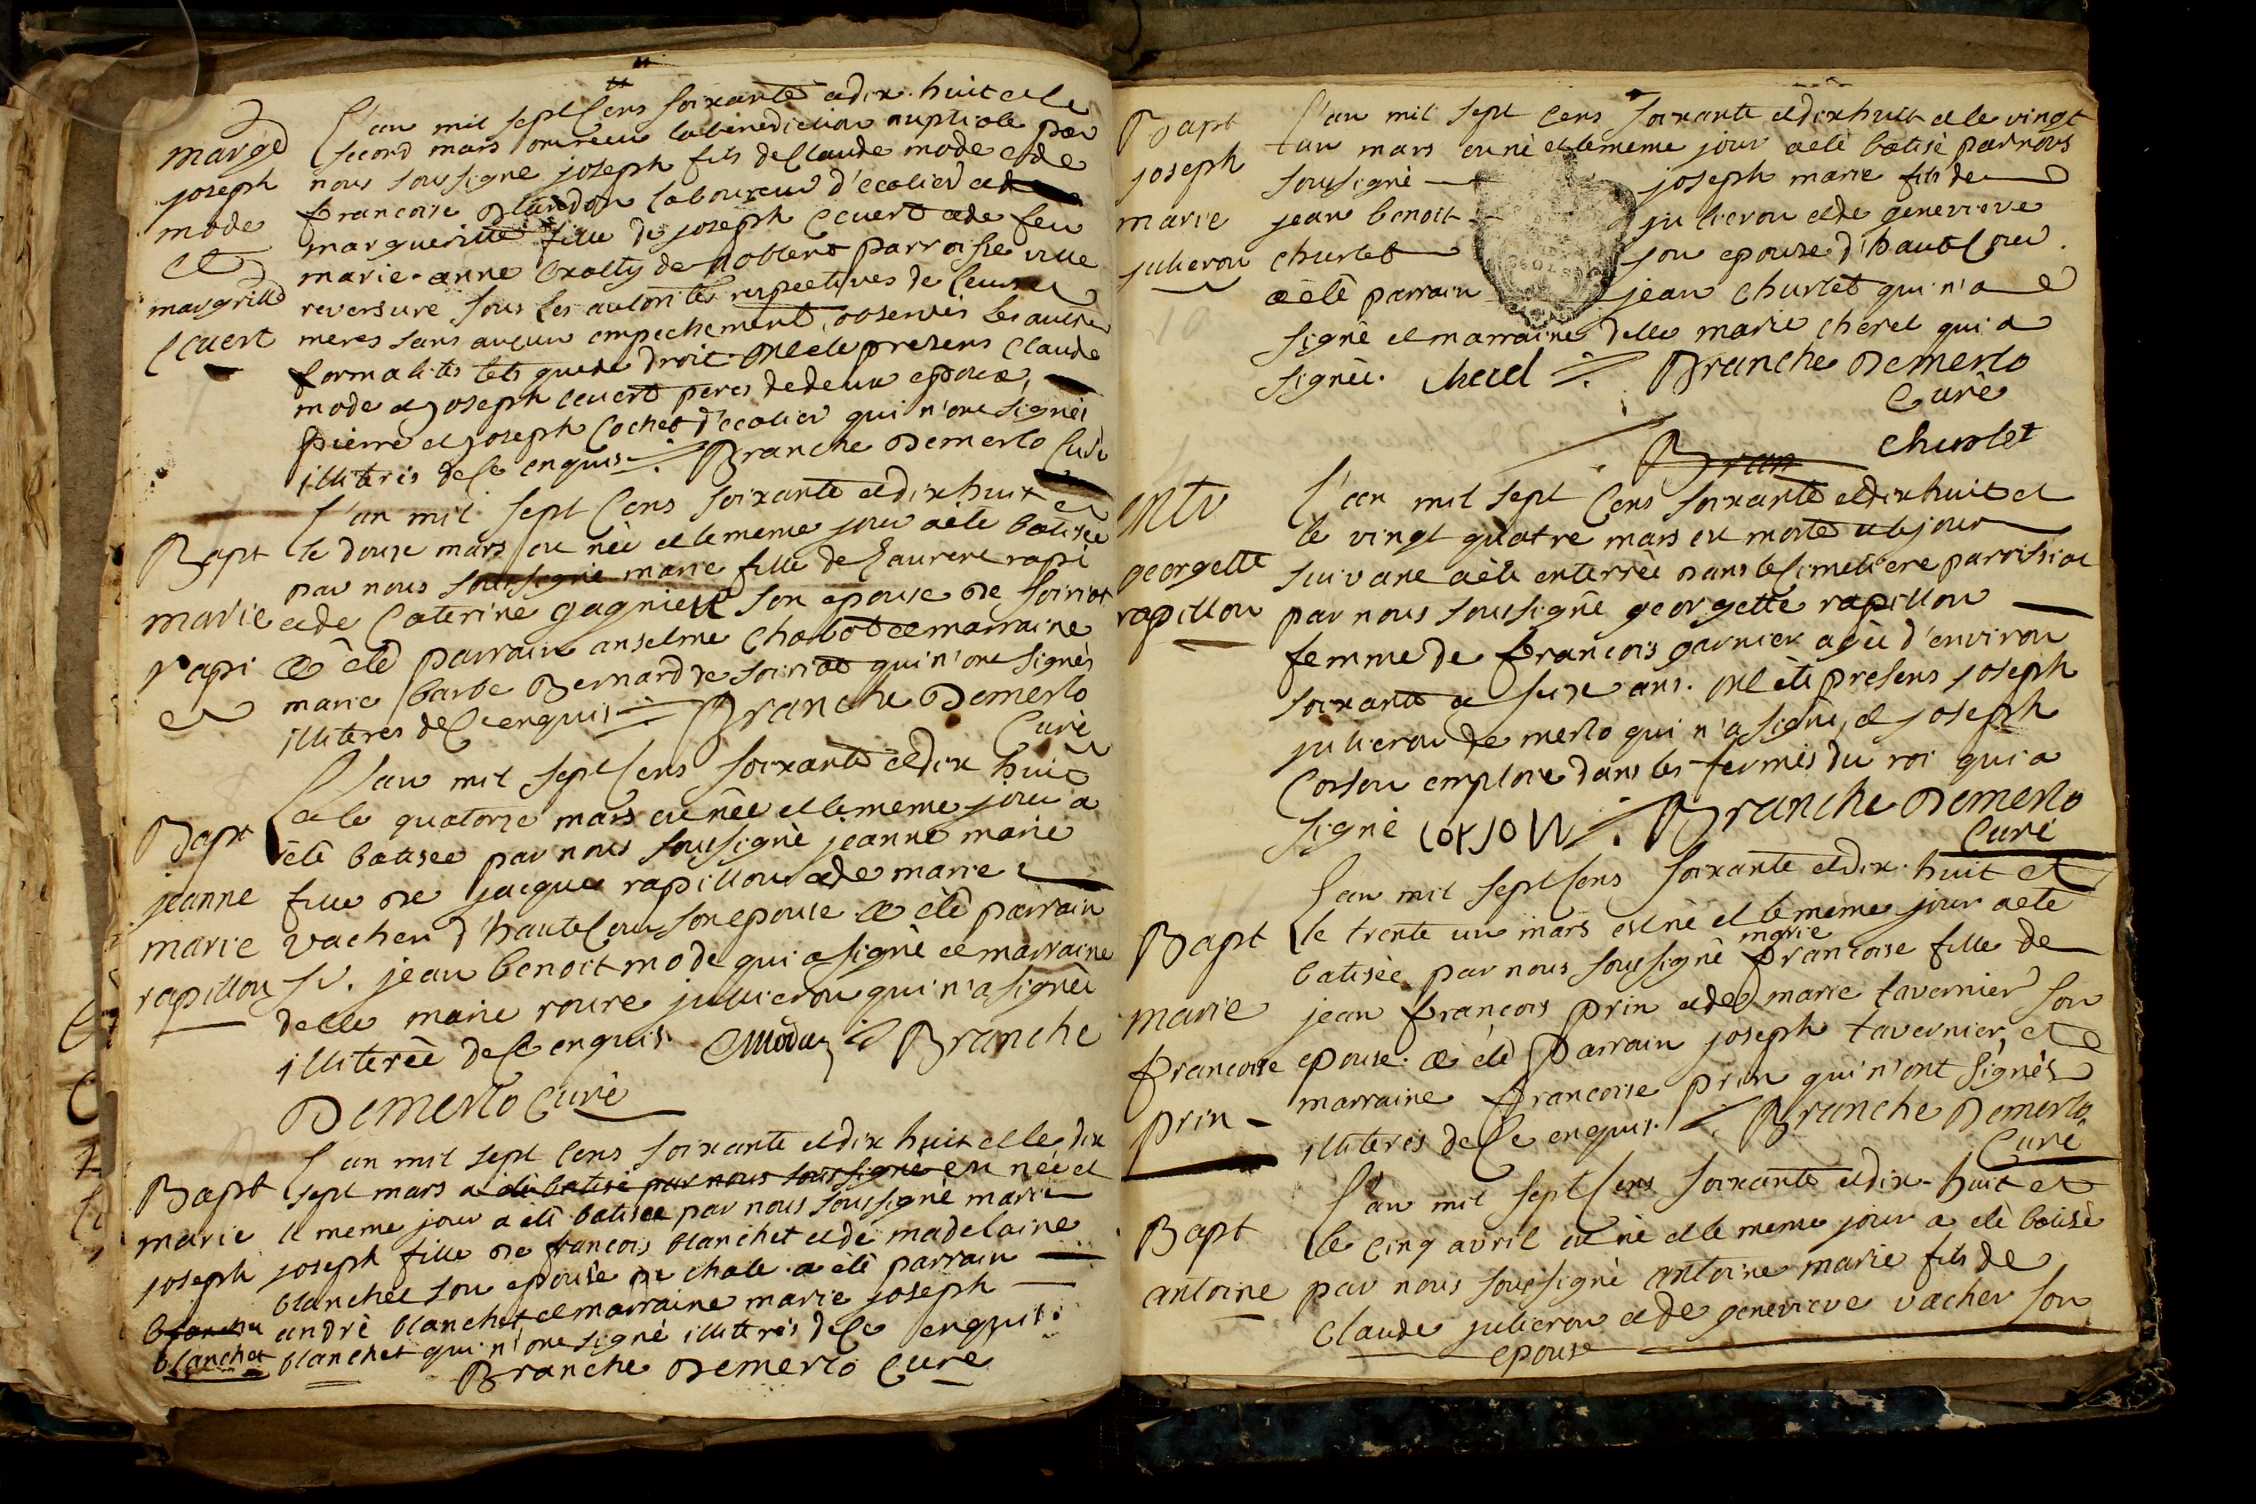 mariage
joseph
mode
et
margritte
ecuert
L'an mil sept cens soixante et dix huit et le
second mars ont recu la benediction nuptiale par
nous soussigné joseph fils de Claude mode et de
francoise Blandon laboureur d'ecolier et de
margueritte fille de joseph ecuert et de feu
marie-anne de noblens parroisse
reversure sous les autorités respectives de leurs
meres sans aucun empechement, observés les autres
formalités tels que de droit. ont été presens Claude
mode et joseph ecuert peres de deux epoux,
pierre et joseph Cochet d'ecolier qui n'ont signés
illiterés de ce enquis Branche Demerlo Curé
Bapt
marie
rapi
L'an mil sept cens soixante et dix huit et
le douze mars est née et le meme jour a été batisée
par nous soussigné marie fille de Laurent rapi
et de Caterine gagnieu son epouse de soiriat
a été parrain anselme Charlot et marraine
marie barbe Bernard de soiriat qui n'ont signés
illiteres de ce enquis Branche Demerlo
Curé
Bapt
jeanne
marie
rapillon
L'an mil sept cens soixante et dix huit
et le quatorze mars est née et le meme jour a
été batisée par nous soussigné jeanne marie
fille de jacques rapillon et de marie
vacher d'hautecour son epouse a été parrain
Sr. jean benoit mode qui a signé et marraine
delle marie roure julieron qui n'a signée
illiterée de ce enquis. Branche
Demerlo Curé
Bapt
marie
joseph
blanchet
blanchet
L'an mil sept cens soixante et dix huit et le dix
sept mars a été batisé par nous soussigné est née et
le meme jour a été batisée par nous soussigné marie
joseph fille de francois blanchet et de madelaine
blanchet son epouse de chale a été parrain
andré blanchet et marraine marie joseph
blanchet qui n'ont signé illiterés de ce enquis.
Branche Demerlo Curé
Bapt
joseph
marie
julieron
L'an mil sept cens soixante et dix huit et le vingt
un mars est né et le meme jour a été batisé par nous
soussigné joseph marie fils de
jean benoit julieron et de genevieve
churlet son epouse d'hautecour.
a été parrain jean churlet qui n'a
signé et marraine delle marie cherel qui a
signée. cherel Branche Demerlo
Curé
Bran churlet
georgette
rapillon
L'an mil sept cens soixante et dix huit et
le vingt quatre mars est morte et le jour
suivant a été enterrée dans le cimetiere parroissial
par nous soussigné georgette rapillon
femme de francois garnier agée d'environ
soixante et seize ans. ont été presens joseph
julieron de merlo qui n'a signé, et joseph
Corson emploié dans les fermes du roi qui a
signé corson Branche Demerlo
Curé
Bapt
marie
francoise
prin
L'an mil sept cens soixante et dix huit et
le trente un mars est né et le meme jour a été
marie
batisée par nous soussigné francoise fille de
jean francois prin et de marie tavernier son
epouse. a été parrain joseph tavernier, et
marraine francoise prin qui n'ont signés
illiterés de ce enquis. Branche Demerlo
Curé
Bapt
antoine
L'an mil sept cens soixante et dix-huit et
le cinq avril est né et le meme jour a été batisé
par nous soussigné antoine marie fils de
Claude julieron et de genevieve vacher son
epouse